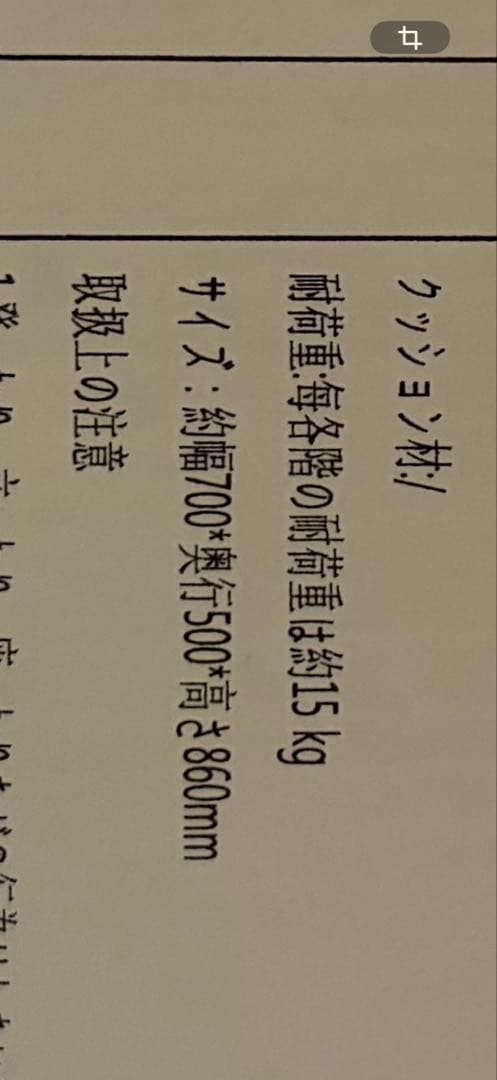 クッション材:/
耐荷重:毎各階の耐荷重は約15 kg
サイズ：約幅700*奥行500*高さ860mm
取扱上の注意